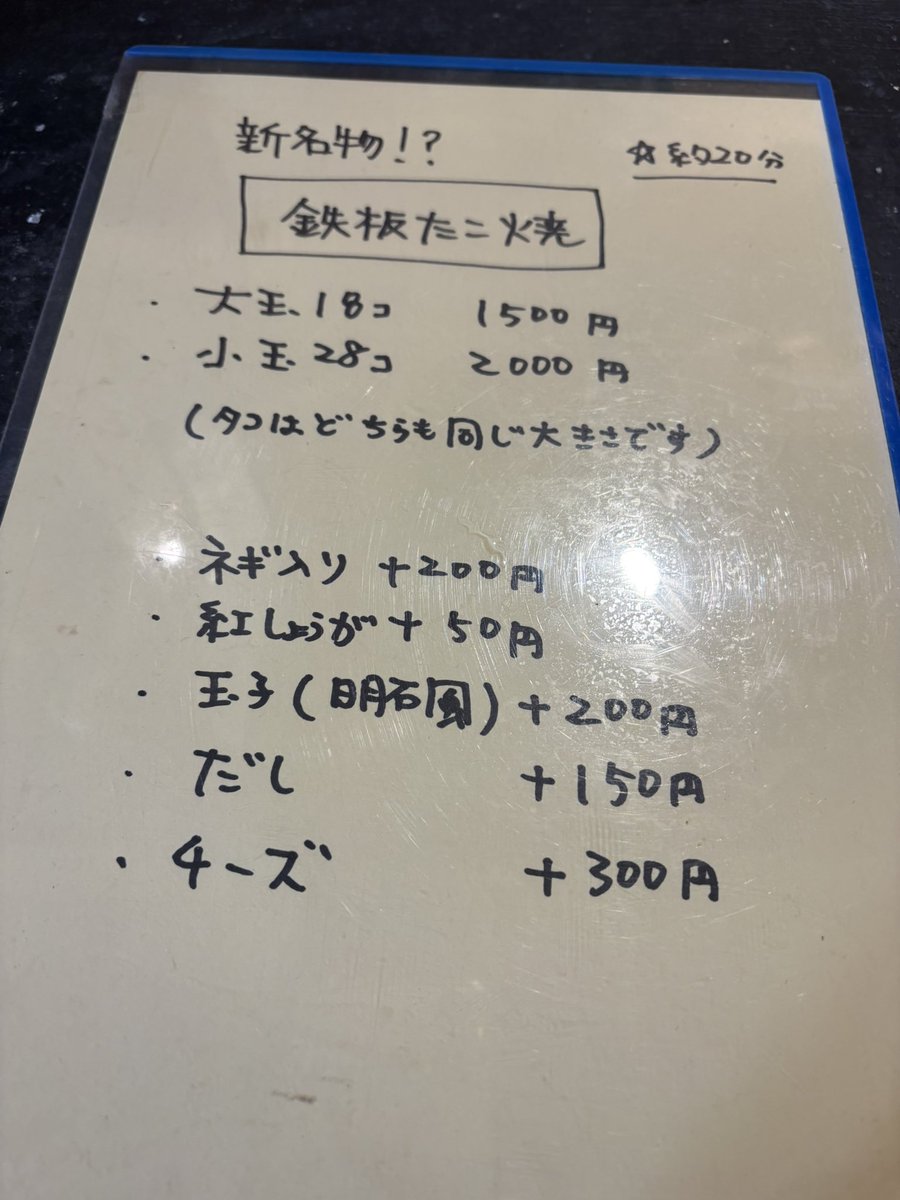 新名物!?
☆約20分
鉄板たこ焼
・大玉18コ 1500円
・小玉28コ 2000円
(タコはどちらも同じ大きさです)
・ネギ入り +200円
・紅しょうが +50円
・玉子(明石風) +200円
・だし +150円
・チーズ +300円